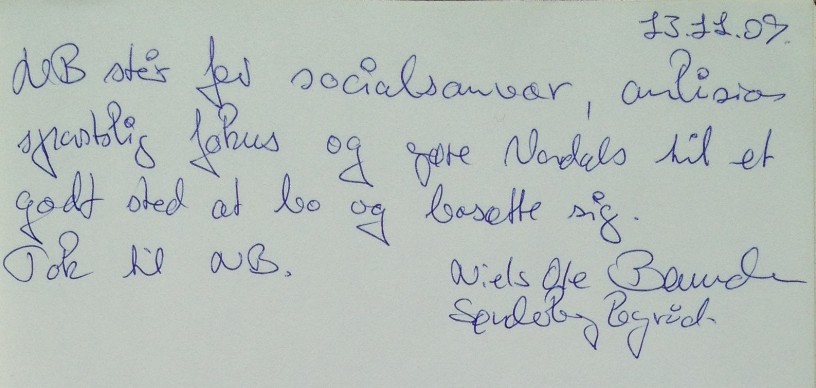 13.11.09.
NB står for socialsanvar,
fokus og gøre Nordals til et
godt sted at bo og bosætte sig.
Tak til NB.
Niels Ole
Sønderborg Byråd.